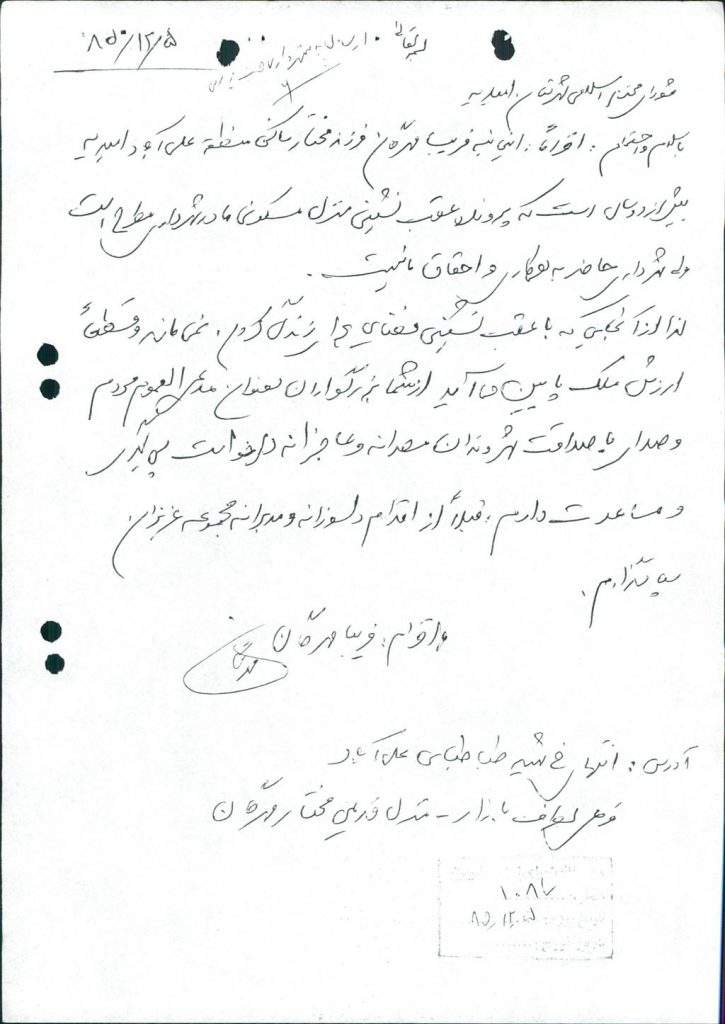 بسمه تعالی
۸۵/۱۲/۵
شورای محترم اسلامی شهرستان امیدیه
با سلام و احترام، احتراماً، اینجانبه فریبا مهرگان فرزند مختار ساکن منطقه علی آباد امیدیه
بیش از دو سال است که پرونده عقب نشینی منزل مسکونی ما در شهرداری مطرح است
ولی شهرداری حاضر به همکاری و احقاق ما نیست.
لذا از آنجایی که با عقب نشینی فضای برای زندگی کردن، نمی ماند و قطعاً
ارزش ملک پایین می آید از شما بزرگواران بعنوان مدعی العموم مردم
و صدای با صداقت شهروندان مصرانه و عاجزانه درخواست پی گیری
و مساعدت دارم، قبلاً از اقدام دلسوزانه و مدبرانه مجموعه عزیزان
سپاسگزارم.
با احترام، فریبا مهرگان
آدرس: انتهای خ شهید طباطبایی علی آباد
منزل قدیمی مختار مهرگان
۱۰۸۷
۸۵/۱۲/۰۵